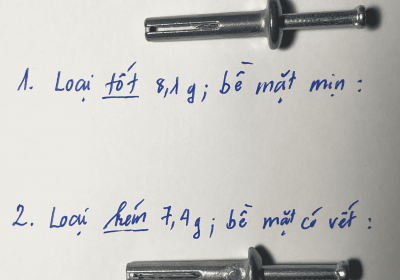 1. Loại tốt 8,1g; bề mặt mịn:
2. Loại kém 7,4g; bề mặt có vết: